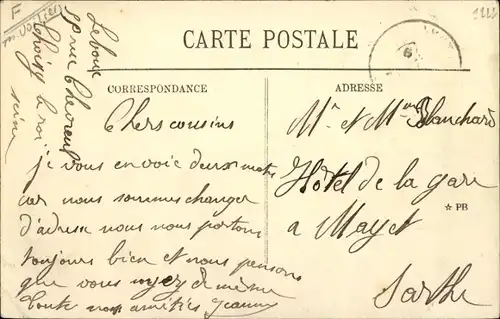 F
CARTE POSTALE
CORRESPONDANCE
ADRESSE
Leroux
rue Chevreul
Choisy le roi
seine
Chers cousins
je vous envoie deux mots
car nous sommes changer
d'adresse nous nous portons
toujours bien et nous pensons
que vous soyez de même
toute nos amitiés Jeanne
Mr et Mme Blanchard
Hôtel de la gare
a Mayet
☆ PB
Sarthe